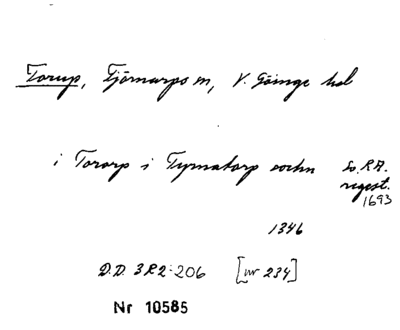 Torup, Tjörnarps sn, V. Göinge hd
i Tororp i Tyrnatorp sochn Sv. R A.
regest.
1693
1346
D.D. 3 R 2:206 [nr 234]
Nr 10585